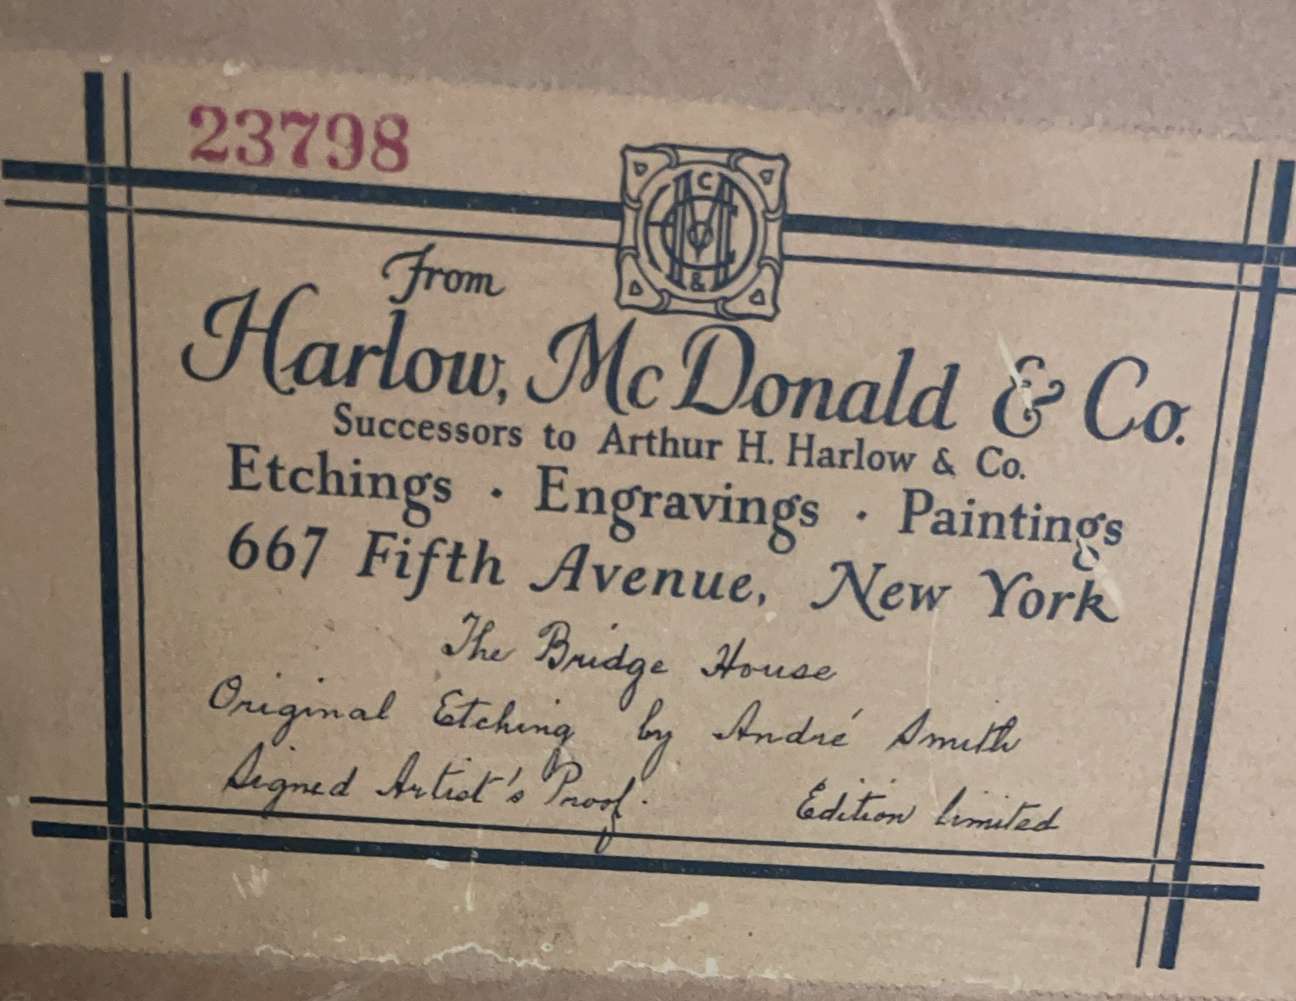 23798
From
Harlow, McDonald & Co.
Successors to Arthur H. Harlow & Co.
Etchings · Engravings · Paintings
667 Fifth Avenue, New York
The Bridge House
Original Etching by André Smith
Signed Artist's Proof. Edition limited